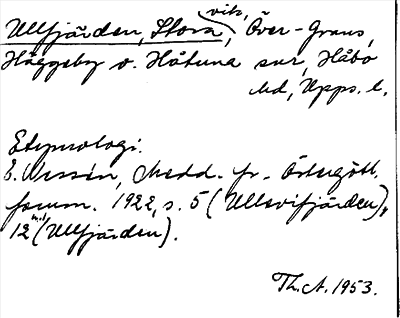 Ullfjärden, Stora, vik, Över-Grans,
Häggeby o. Håtuna snr, Håbo
hd, Upps. l.
Etymologi.
E. Wessén, Medd. fr. Östergötl.
fornm. 1922, s. 5 (Ullevifjärden),
12 (Ullfjärden).
Th. A. 1953.